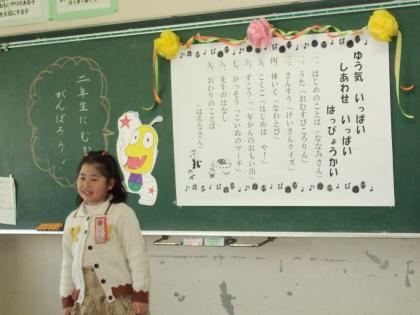 ゆう気 いっぱい
しあわせ いっぱい
はっぴょうかい
一、はじめのことば（ななみさん）
二、うた「おむすびころりん」
三、さんすう「けいさんクイズ」
四、体いく「なわとび」
五、こくご「はじめは や！」
六、ずこう「一年かんのおもい出」
七、がっそう「こいぬのマーチ」
八、先生のはなし
九、おわりのことば
（はるなさん）
二年生にむけ
がんばろう！